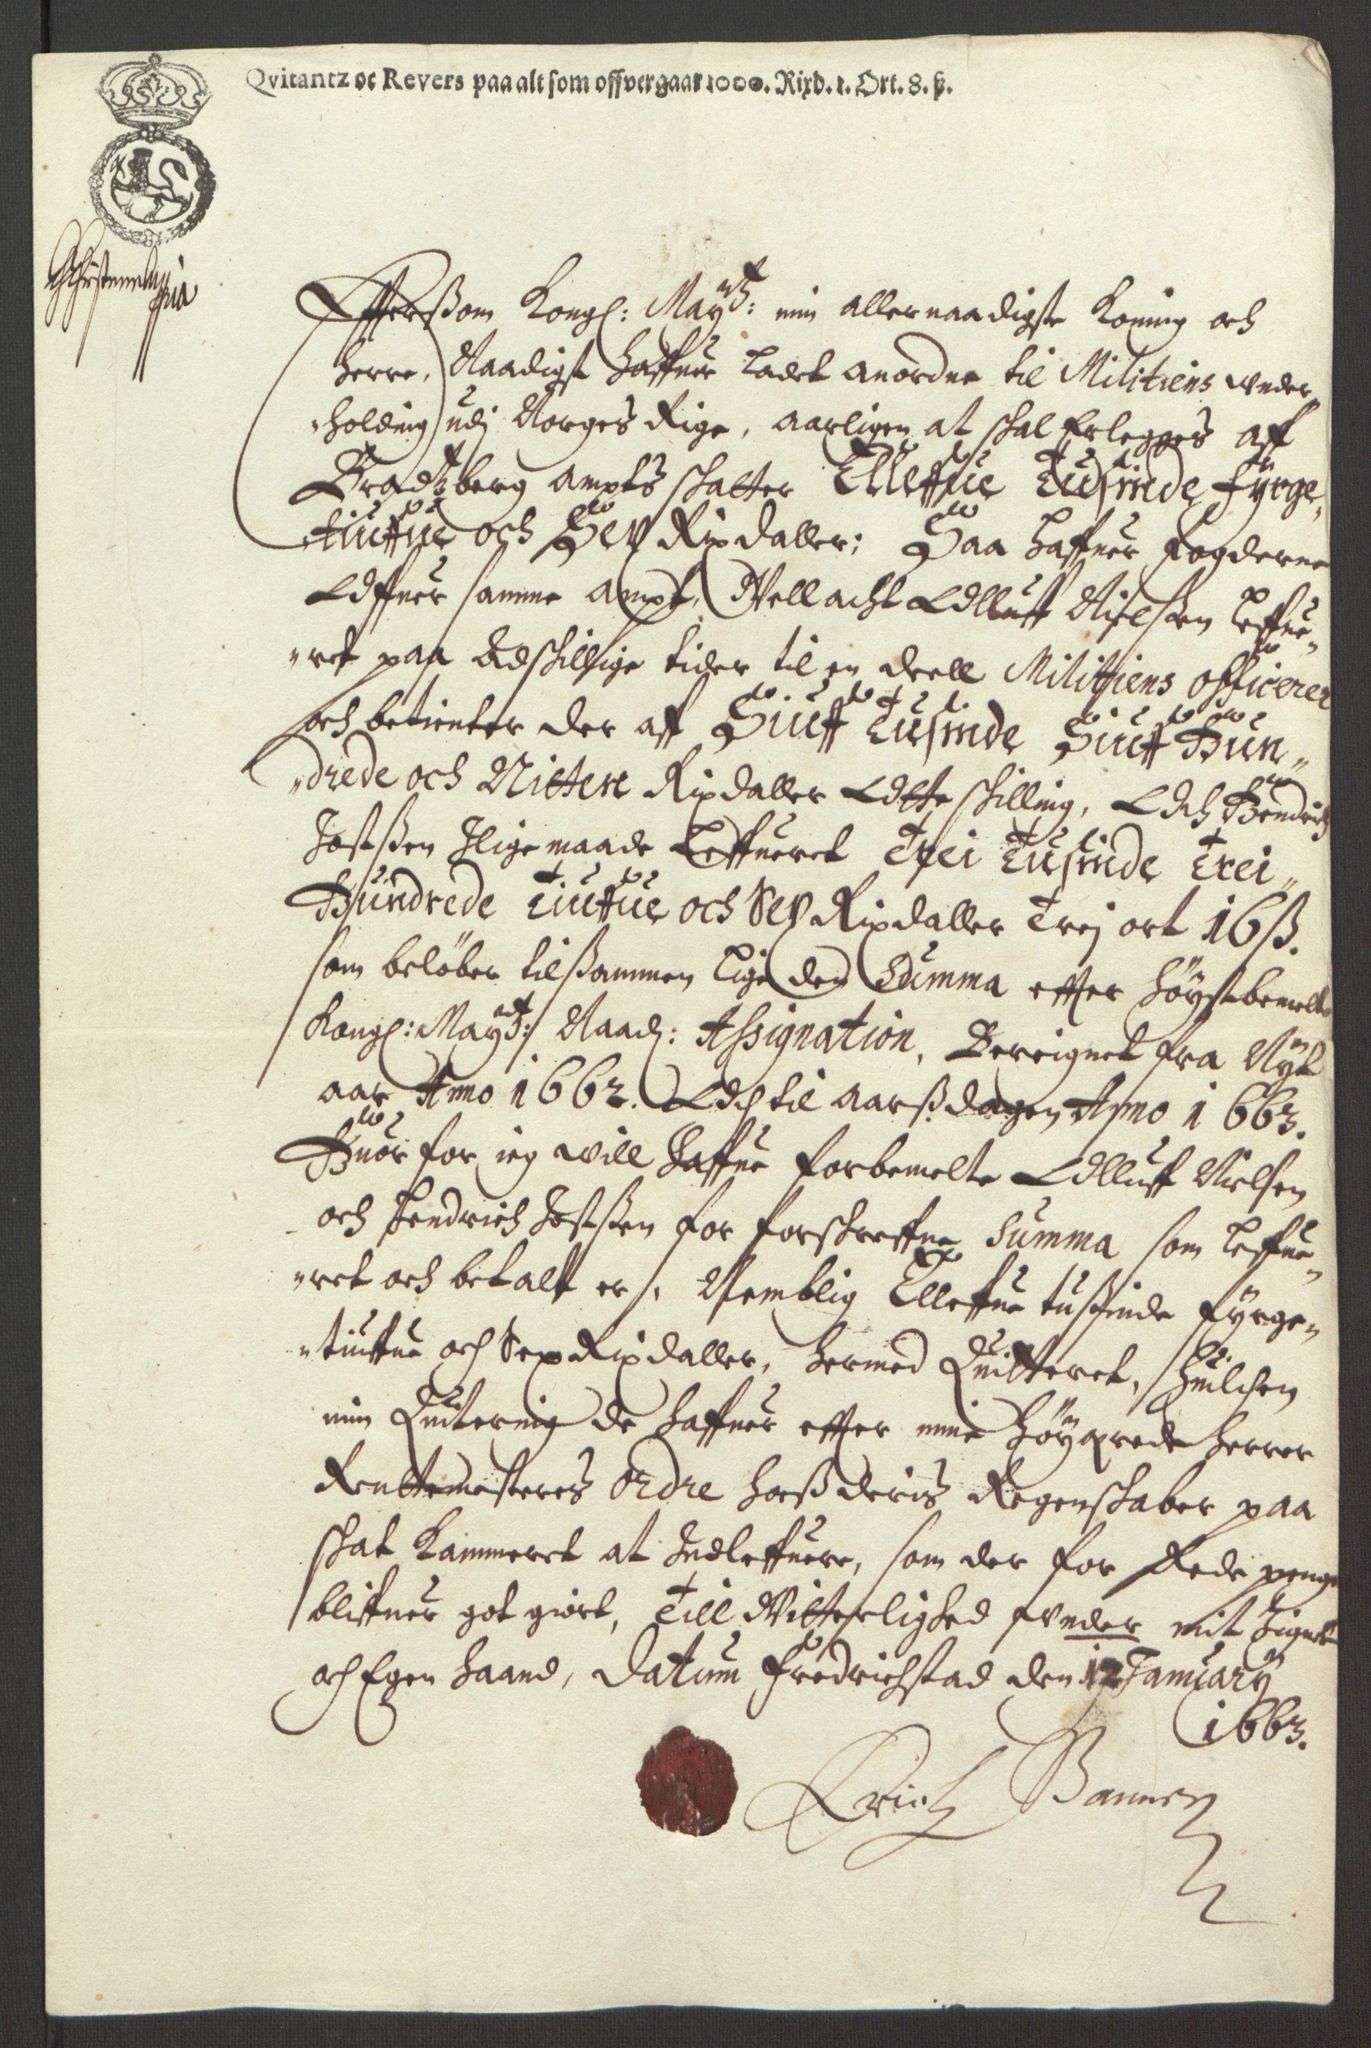 Qvitantz oc Revers paa alt som offvergaar 1000. Rixd. 1. Ort. 8. ß.
Christiania
Effterßom Kongl: Mayts: min allernaadigste Koning och
herre, Naadigst haffuer ladet anordne til Militiens vnder,,
,,holding udj Norges Rige, aarligen at skal Erlegges aff
Bradtzberg ampts skatter Elleffue Tusinde fyrge,,
,,tiuffue och Sex Rixdaller; Saa haffuer fogderne
Offuer samme ampt, Wellacht Olluff Nielsßen leffue,,
,,ret paa Adskillige tider til en deell Militiens officerer
och betienter der aff Siuff Tusinde Siuff Hun,,
,,drede och Nitten Rixdaller Otte skilling, Och Hendrich
Jostßen Jligemaade Leffueret Trei Tusinde Trei,,
Hundrede Tiuffue och Sex Rixdaller Trej ort 16 ß.
som beløber tilßammen lige den Summa effter høystbemelte
Kongl: Mayts: Naad: Assignation, Bereignet fra Nyt
aar Anno 1662. Och til aarßdagen Anno 1663.
Huor for ieg will haffue forbemelte Olluff Nielsen
och Hendrich Jostßen for forschreffne Summa som leffue,,
,,ret och betalt er, Nemblig Elleffue tusßinde fyrge,,
,,tiuffue och Sex Rixdaller, hermed Quitteret, huilchen
min Quitering de haffuer effter mine høyærede herrer
Rentemesteres ordre hoeß deris Regenskaber paa
skat Kammeret at Indleffuere, som der for Rede penge
bliffuer got giort, Till Witterlighed vnder mit Zignet
och Egen haand, Datum Fredrichstad den 12 January
1663.
Erich Banner